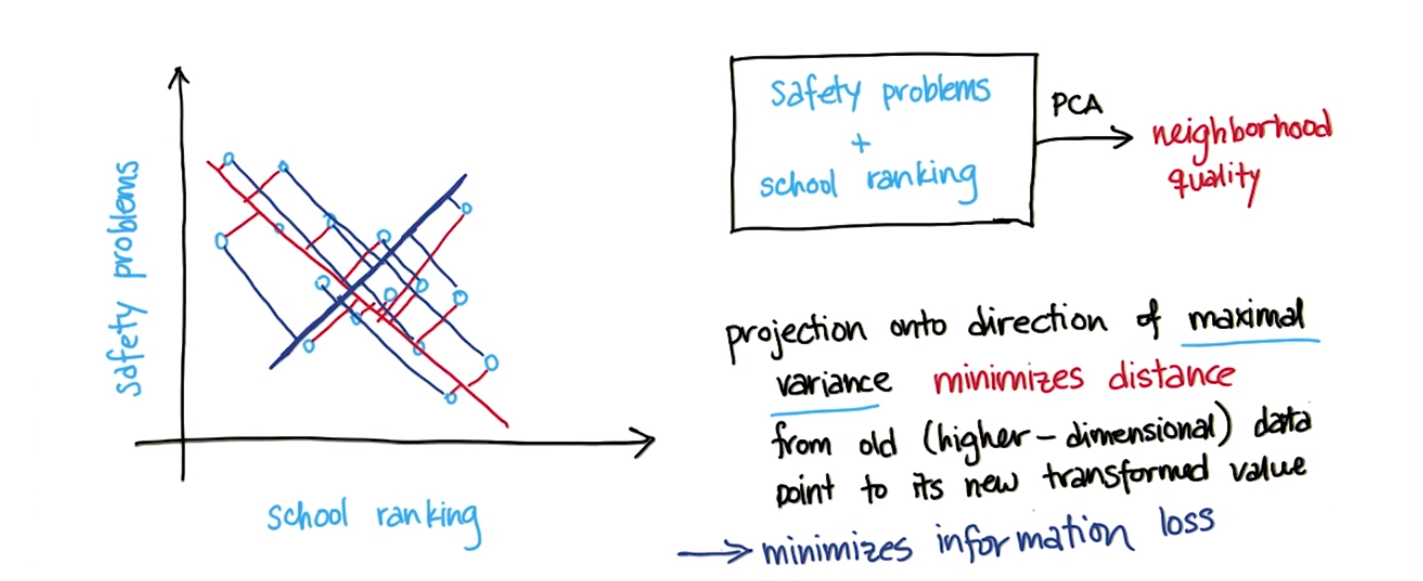 safety problems
school ranking
safety problems
+
school ranking
PCA
neighborhood
quality
projection onto direction of maximal
variance minimizes distance
from old (higher-dimensional) data
point to its new transformed value
→ minimizes information loss